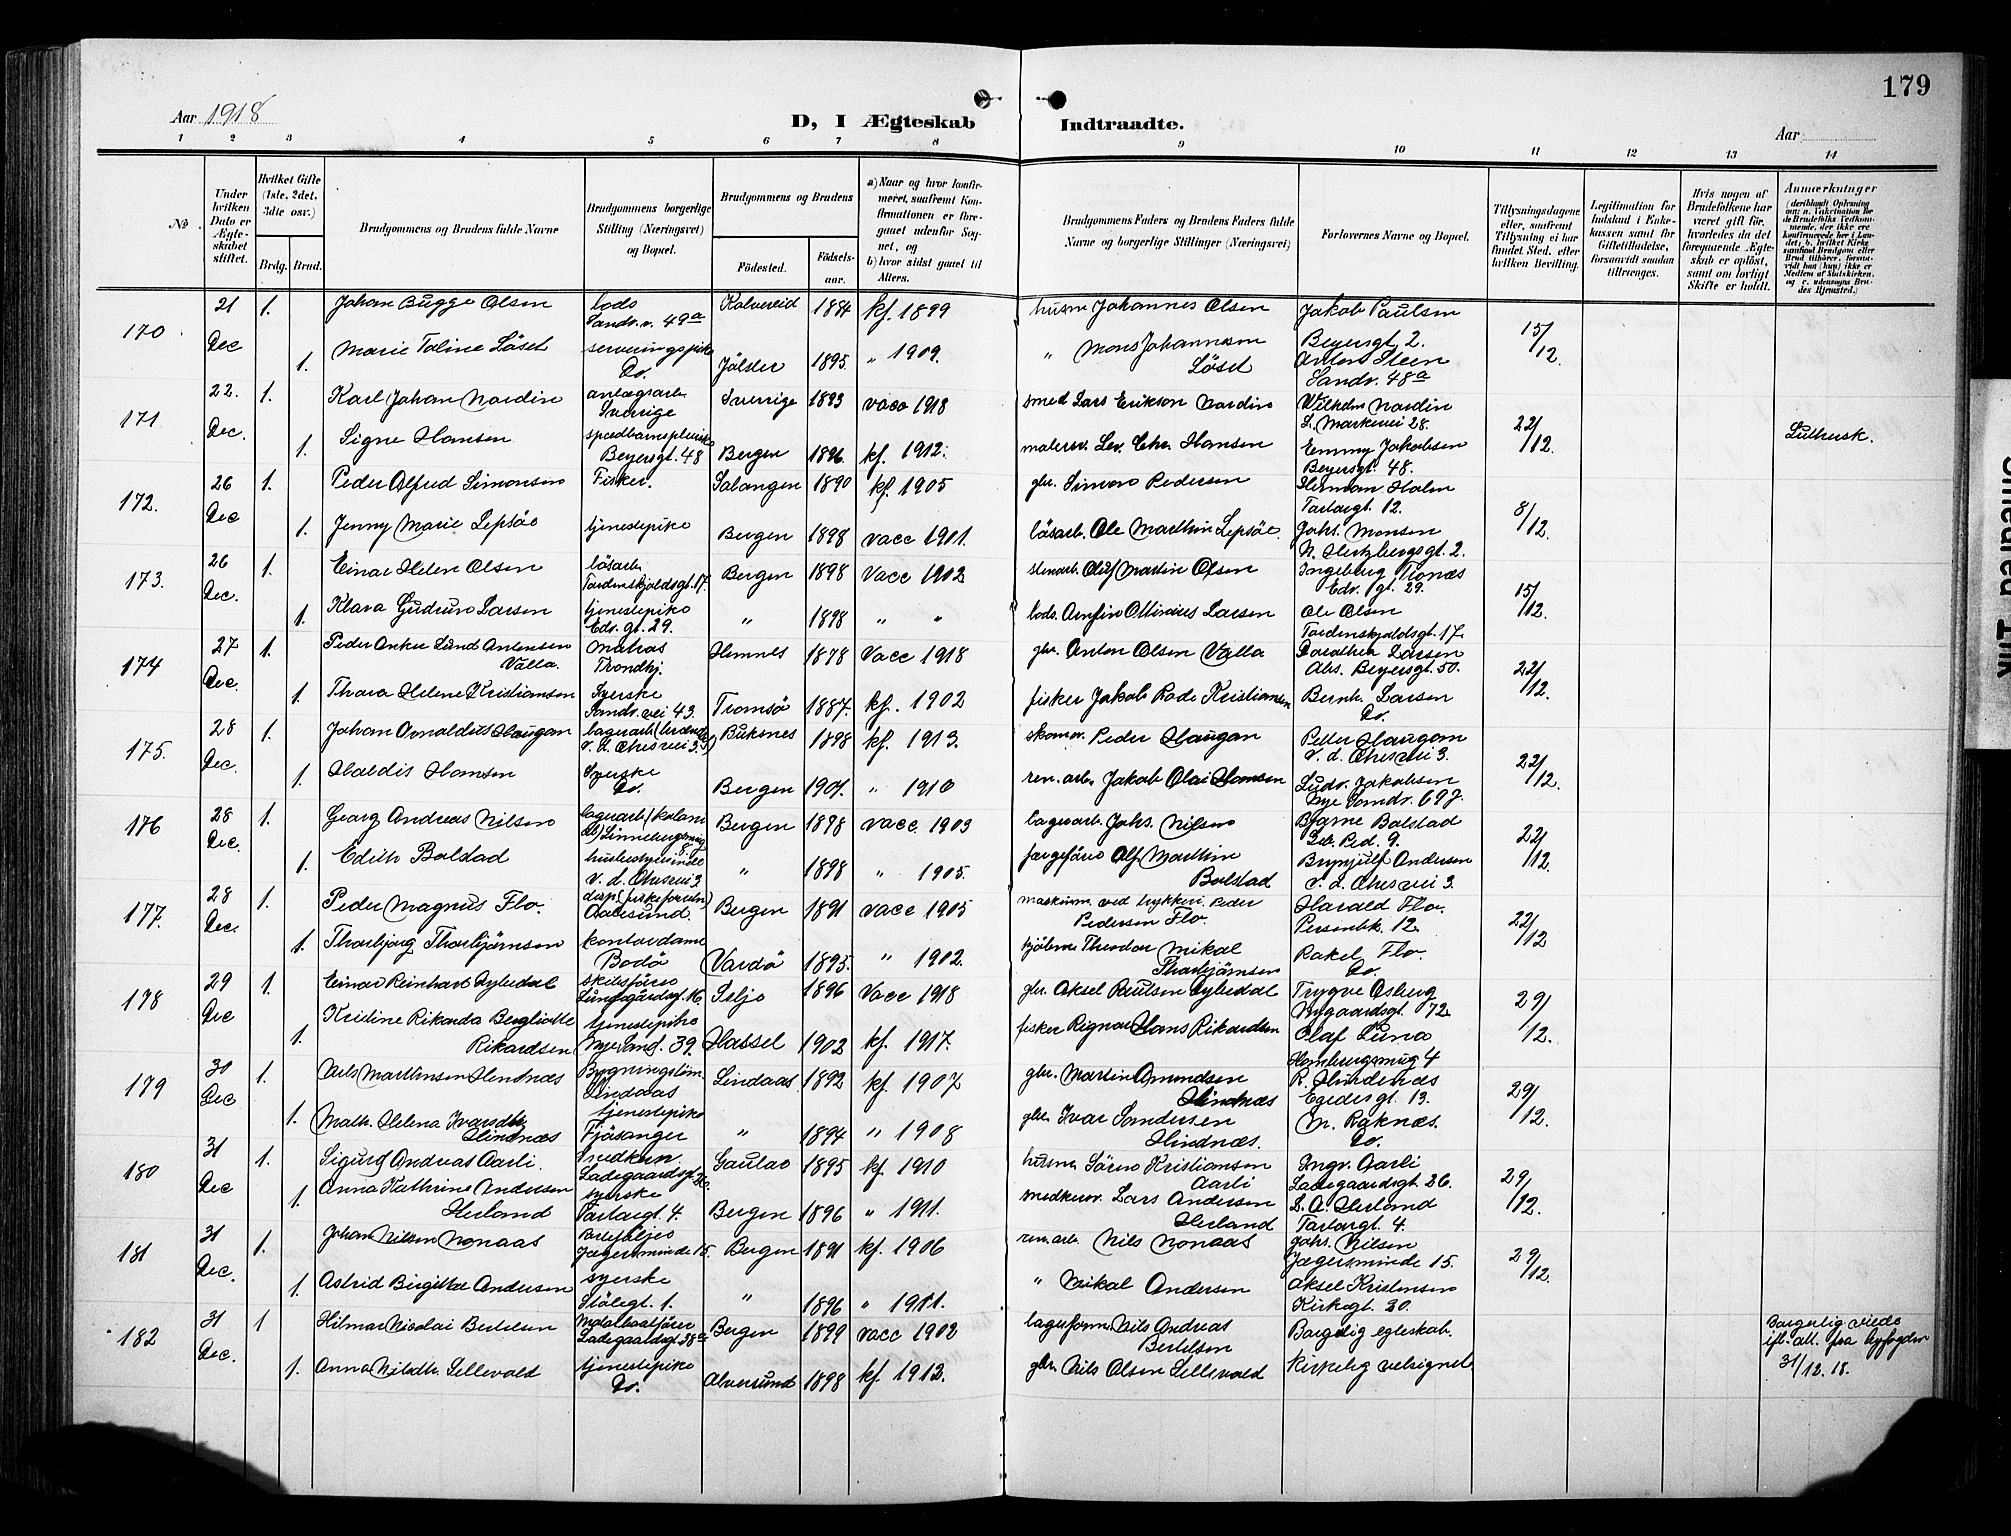 179
Aar 1918
D, I Ægteskab Indtraadte.
Aar
1 2 3 4 5 6 7 8 9 10 11 12 13 14
No.
Under hvilken Dato er Ægteskabet stiftet.
Hvilket Gifte (1ste, 2det, 3die osv.)
Brdg. Brud.
Brudgommens og Brudens fulde Navne
Brudgommens borgerlige Stilling (Næringsvei) og Bopæl.
Brudgommens og Brudens
Fødested.
Fødselsaar.
a) Naar og hvor konfirmeret, saafremt Konfirmationen er foregaaet udenfor Sognet, og
b) hvor sidst gaaet til Alters.
Brudgommens Faders og Brudens Faders fulde Navne og borgerlige Stillinger (Næringsvei)
Forlovernes Navne og Bopæl.
Tillysningsdagene eller, saafremt Tillysning ei har fundet Sted, efter hvilken Bevilling.
Legitimation for Indskud i Enkekassen samt for Giftetilladelse, forsaavidt saadan tiltrænges.
Hvis nogen af Brudefolkene har været gift før, hvorledes da det foregaaende Ægteskab er opløst, samt om lovligt Skifte er holdt.
Anmerkninger (deriblandt Oplysning om: a. Vakcination for de Brudefolks Vedkommende, der ikke ere konfirmerede her i Landet; b. hvilket Kirkesamfund Brudgom eller Brud tilhører, forsaavidt han (hun) ikke er Medlem af Statskirken, og c. udensogns Brudes Hjemsted.)
170 21 Dec 1. Johan Bugge Olsen lods Sandv.v. 49a Kalvereid 1884 kf. 1899 husm Johannes Olsen Jakob Paulsen Beyersgt 2. 15/12
1. Marie Taline Løset serveringspike Do. Jölster 1895 " 1909. " Mons Johannesen Løset Anton Steen Sandv. 48a
171 22. Dec. 1. Karl Johan Nordin anlægsarb. Sverrige Sverrige 1893 vacc 1918 smed Lars Erikson Nordin Wilhelm Nordin L. Markevei 28. 22/12
1. Signe Hansen spædbarnspleierske Beyersgt. 48 Bergen 1896 kf. 1912. malersv. Lev. Chr. Hansen Emmy Jakobsen Beyersgt. 48. Luthersk.
172. 26 Dec 1. Peder Alfred Simonsen Fisker. Salangen 1890 kf. 1905 gbr. Simon Pedersen Herman Holm Tartargt. 12. 8/12
1. Jenny Marie Lepsøe tjenestepike Bergen 1898 vacc 1901. løsarb. Ole Marthin Lepsøe. Johs. Monsen N. Hertzbergsgt. 2.
173. 26 Dec. 1. Einar Helen Olsen løsarb. Tordenskjoldsgt. 17. Bergen 1898 Vacc 1902 stenarb. Oluf Martin Olsen Ingeborg Tronæs Edv. gt. 29. 15/12.
1. Klara Gudrun Larsen tjenestepike Edv. gt. 29. " 1898 " " lods. Arnfin Ottinius Larsen Ole Olsen Tordenskjoldsgt. 17.
174 27 Dec. 1. Peder Anker Lund Antonsen Valla. matros Trondhj. Hemnes 1878 Vacc 1918 gbr. Anton Olsen Valla Dorothea Larsen Abs. Beyersgt. 50. 22/12.
1. Thora Helene Kristiansen Syerske Sandv. vei 43. Tromsø 1887. kf. 1902 fisker Jakob Rode Kristiansen Bernh. Larsen Do.
175. 28 Dec. 1. Johan Arnoldus Haugan lagerarb. v. d. Ohesvei 3. Buksnes 1898 kf. 1913. skom. Peder Haugan Petter Haugan v. d. Ohesvei 3. 22/12.
1. Haldis Hansen Syerske Do. Bergen 1901. " 1916 ren. arb. Jakob Olai Hansen Ludv. Jakobsen Nye Sandv. 69 J.
176 28 Dec. 1. Georg Andreas Nilsen lagerarb. Linnebergsmug 8. Bergen 1898 vacc. 1903 lagerarb. Johs. Nilsen Bjarne Bolstad Seb. Ped. 9. 22/12.
1. Edith Bolstad husbestyrerinde v. d. Ohesvei 3 " 1898 " 1905. fargefører Alf Marthin Bolstad Brynjulf Andersen v. d. Ohesvei 3.
177. 28 Dec. 1. Peder Magnus Flo. disp. (fiskeforretn) Aalesund. Bergen 1891 vacc 1905 maskinm. ved trykkeri Peder Pedersen Flo. Harald Flo. Persenbk. 12. 22/12
1. Thorbjørg Thorbjørnsen kontordame Bodø Vardø 1895. " 1902. kjøbm. Theodor Mikal Thorbjørnsen Rakel Flo. Do.
178 29 Dec 1. Einar Reinhart Aybedal skibsfører Lungegaardsgt. 16 Seljo 1896 Vacc 1918 gbr. Aksel Paulsen Aybedal Trygve Osberg Nygaardsgt. 72. 29/12.
1. Kristine Rikarda Bergliotte Rikardsen tjenestepike Nye Sand. 39. Hassel 1902 kf. 1917. fisker Rignar Hans Rikardsen Olaf Luna Hombergsmug 4
179 30 Dec 1. Nils Marthinsen Hindnæs Bygningstøm. Lindaas Lindaas 1892 kf. 1907 gbr. Martin Amundsen Hindnæs R. Hindenæs Egedersgt. 13. 29/12.
1. Math. Helena Ivarsdtr. Hindnæs tjenestepike Fjøsanger " 1894 " 1908 gbr. Ivar Sandersen Hindnæs. M. Røknæs. Do.
180 31 Dec 1. Sigurd Andreas Aarli. Snedker. Ladegaardsgt. 26. Gaular 1895 kf. 1910 husm. Søren Kristiansen Aarli Ingv. Aarli Ladegaardsgt. 26. 29/12.
1. Anna Kathrine Andersen Herland syerske Tartargt. 4. Bergen 1896 " 1911. snedkersv. Lars Andersen Herland L. A. Herland Tartargt. 4.
181 31 Dec. 1. Johan Nilsen Monaas Jægersminde 15. Bergen 1891 kf. 1906 ren. arb. Nils Monaas Johs. Nilsen Jægersminde 15. 29/12.
1. Astrid Birgitte Andersen syerske Stølegt. 1. " 1896 " 1911. " Mikal Andersen Aksel Kristensen Kirkegt. 20.
182 31 Dec. 1 Hilmar Nicolai Bertelsen Motorbaatfører Ladegaardsgt. 38a Bergen 1899 vacc 1902 lagerform. Nils Andreas Bertelsen Borgerlig egteskab. Borgerlig viede ifl. att. fra byfogden 31/12. 18.
1. Anna Nilsdtr. Sellevold tjenestepike Do. Alversund 1898 kf. 1912. gbr. Nils Olsen Sellevold kirkelig velsignet